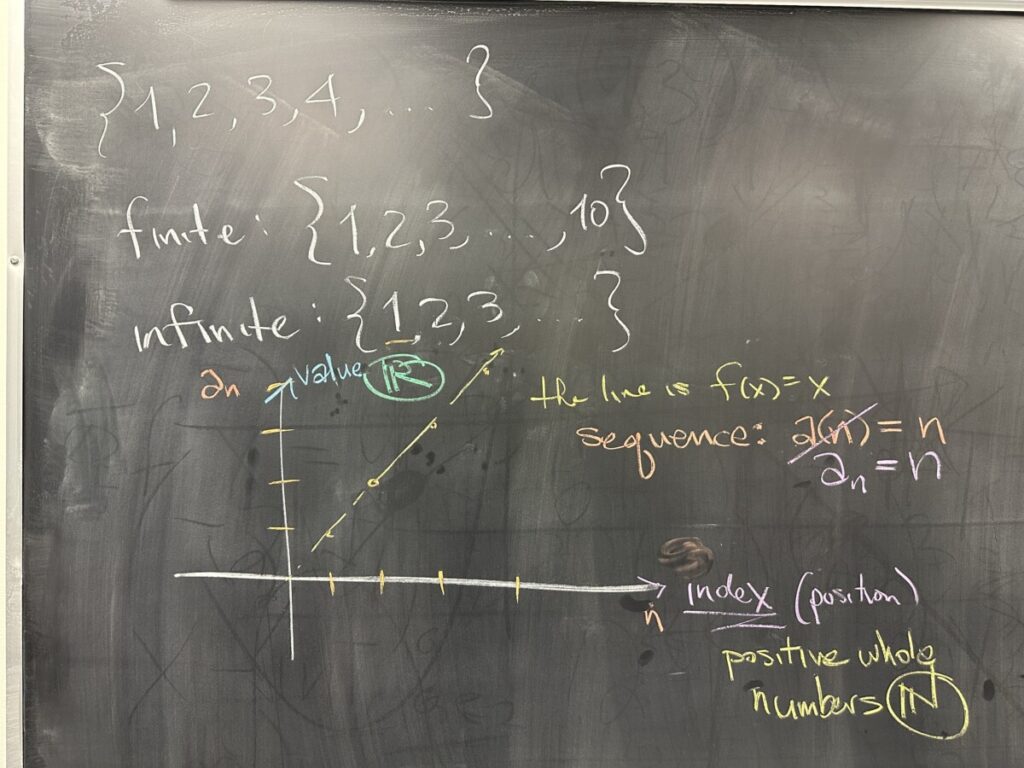 {1, 2, 3, 4, ... }
finite: {1, 2, 3, ... , 10}
infinite: {1, 2, 3, ... }
aₙ value ℝ
the line is f(x) = x
sequence: a(n) = n
aₙ = n
index (position)
n
positive whole
numbers ℕ